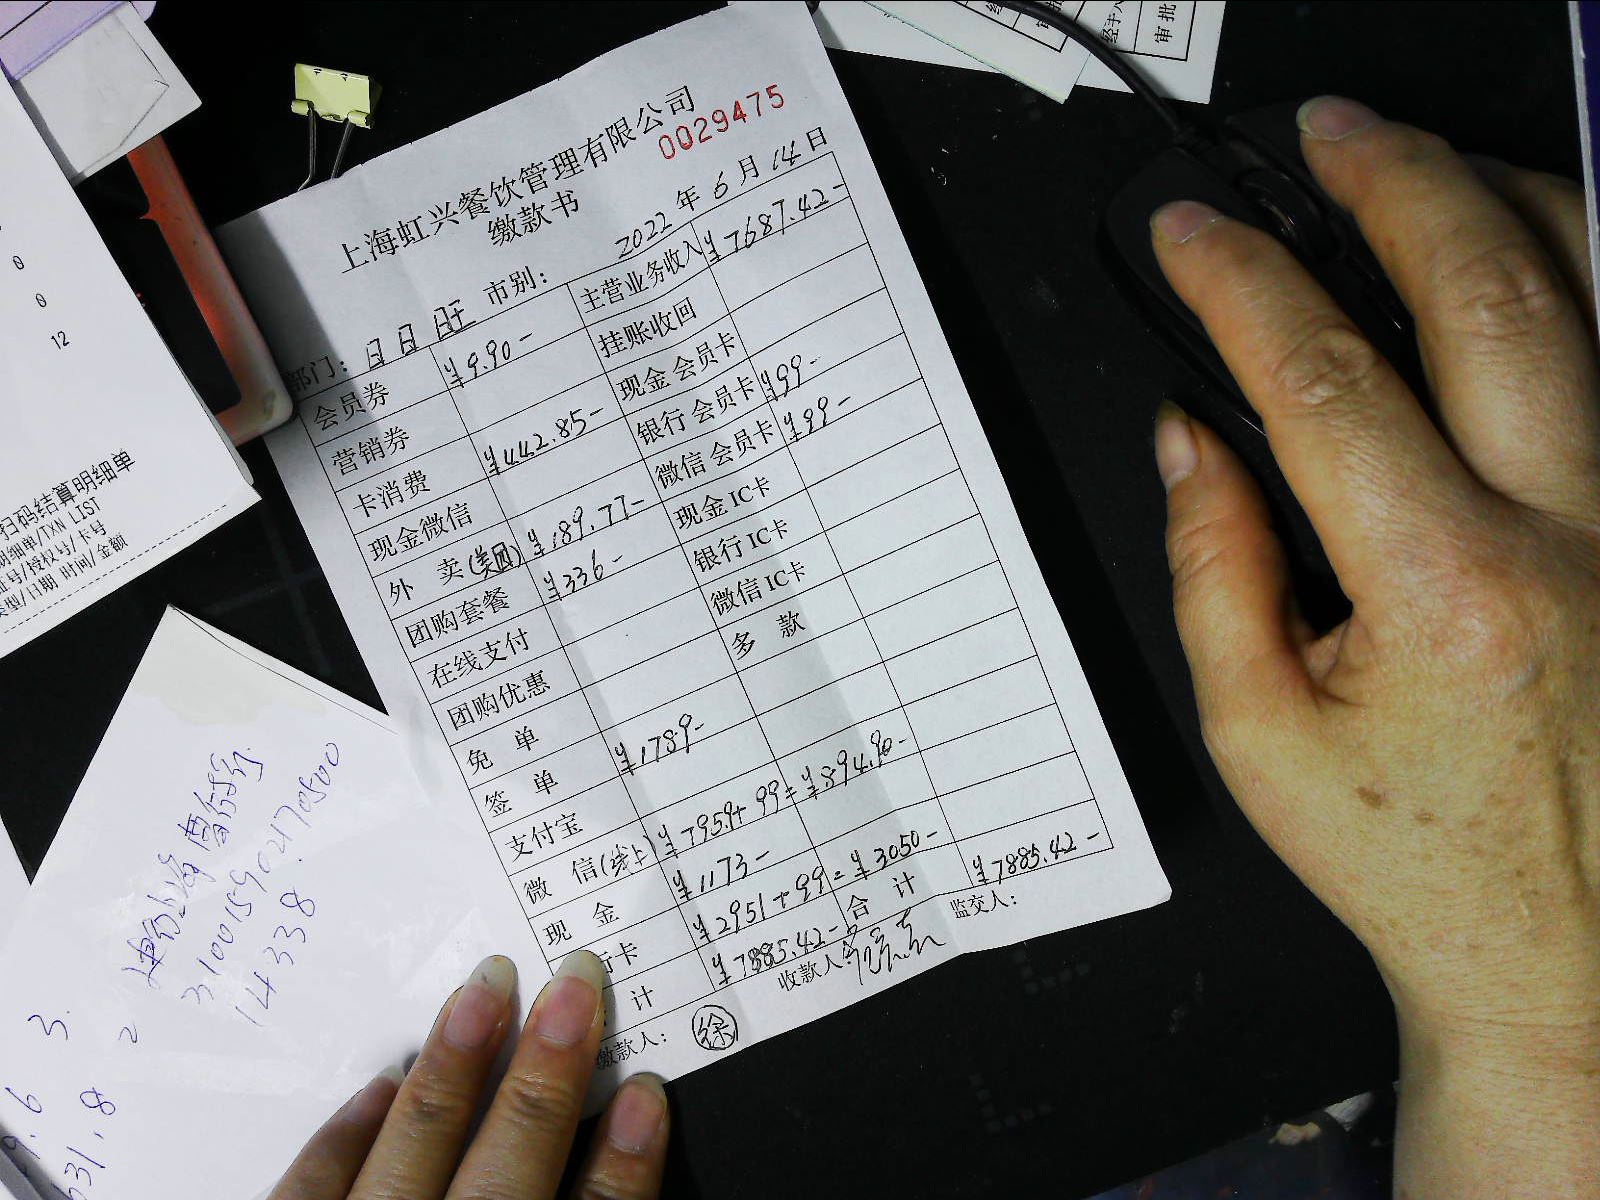 上海虹兴餐饮管理有限公司
0029475
缴款书
部门： 日月旺 市别： 2022年6月14日
会员券 ¥9.90- 主营业务收入 ¥7687.42-
营销券 挂账收回
卡消费 ¥442.85- 现金 会员卡
现金微信 银行 会员卡 ¥99-
外 卖(美团) ¥189.77- 微信 会员卡 ¥99-
团购套餐 ¥336- 现金 IC卡
在线支付 银行 IC卡
团购优惠 微信 IC卡
免 单 多 款
签 单 ¥1789-
支付宝
微 信(线上) ¥795.9+99=¥894.90-
现 金 ¥1173-
行卡 ¥2951+99=¥3050-
计 ¥7885.42- 合 计 ¥7885.42-
缴款人： 徐 收款人： 监交人：
经手人
审批
0
0
12
扫码结算明细单
明细单/TXN LIST
证号/授权号/卡号
类型/日期 时间/金额
310015902170500
14338.
3.
2
9.6
631.8